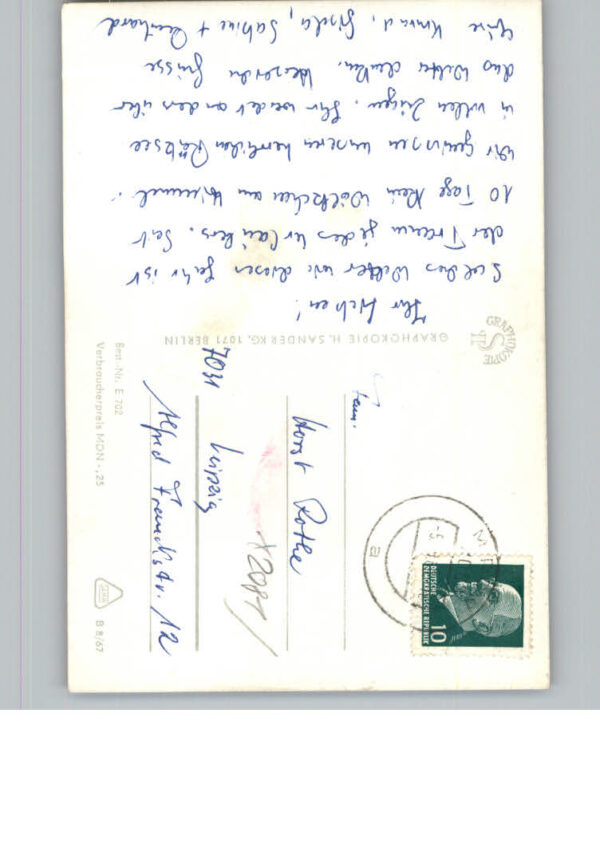 Ihr Lieben!
So das Wetter wie dieses Jahr ist
der Traum jedes Urlaubers. Seit
10 Tage kein Wölkchen am Himmel.
Wir geniessen unseren herrlichen Rätzsee
in vollen Zügen. Ihr werdet anders über
das Wetter denken. Herzliche Grüsse
Eure Konrad, Gisela, Sabine + Reinhard
GRAPHOKOPIE H. SANDER KG, 1071 BERLIN
GRAPHOKOPIE
HS
Best.-Nr. E 702
Verbraucherpreis MDN -,25
B 8/67
Fam.
Horst Rothe
7031 Leipzig
Alfred Franckstr. 12
X2081
DEUTSCHE
DEMOKRATISCHE REPUBLIK
10
a